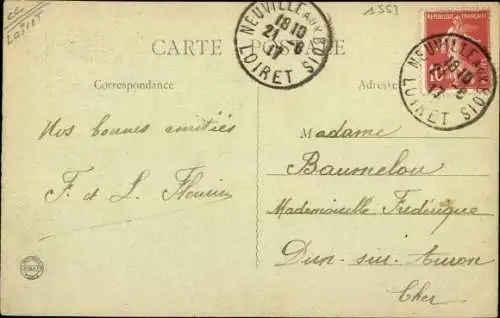 CC
LOIRET
1553
CARTE POSTALE
Correspondance
Adresse
NEUVILLE AUX BOIS
18 10
21 -6
17
LOIRET
REPUBLIQUE FRANÇAISE
10
NEUVILLE AUX BOIS
18 10
-6
17
LOIRET
Nos bonnes amitiés
F. et L. Fleurier
Madame
Baumelou
Mademoiselle Frédérique
Dun-sur-Auron
Cher